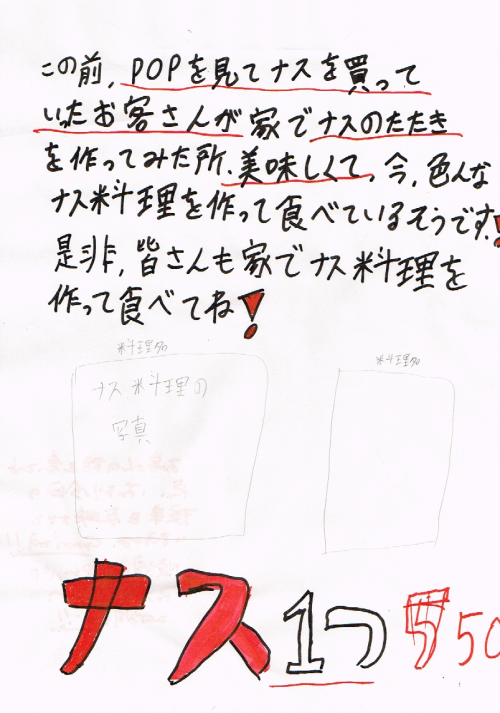 この前、POPを見てナスを買って
いったお客さんが家でナスのたたき
を作ってみた所、美味しくて、今、色んな
ナス料理を作って食べているそうです!
是非、皆さんも家でナス料理を
作って食べてね!
料理名
料理名
ナス料理の
写真
ナス1つ
50